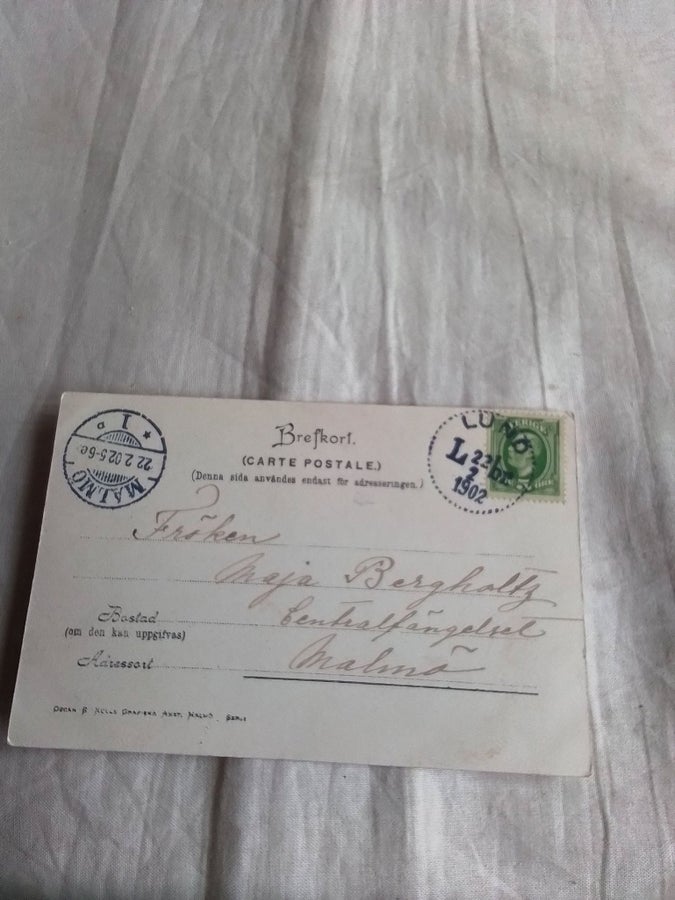 Brefkort.
(CARTE POSTALE.)
(Denna sida användes endast för adresseringen.)
1
22.2.02.5-6e
MALMÖ
LUND
L 22
2
1902
SVERIGE
ÖRE
Fröken
Maja Bergholtz
Bostad
(om den kan uppgifvas)
Centralfängelset
Adressort
Malmö
GRAFISKA ANST. MALMÖ.